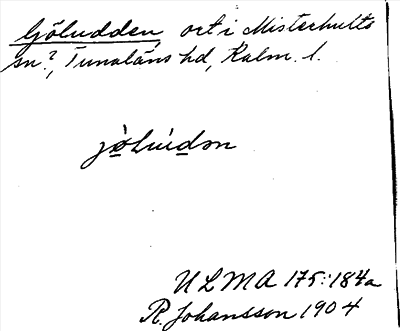 Gjöludden, ort i Misterhults
sn?, Tunaläns hd, Kalm. l.
jo̱Lu̇́ḏən
ULMA 175:184a
R. Johansson 1904